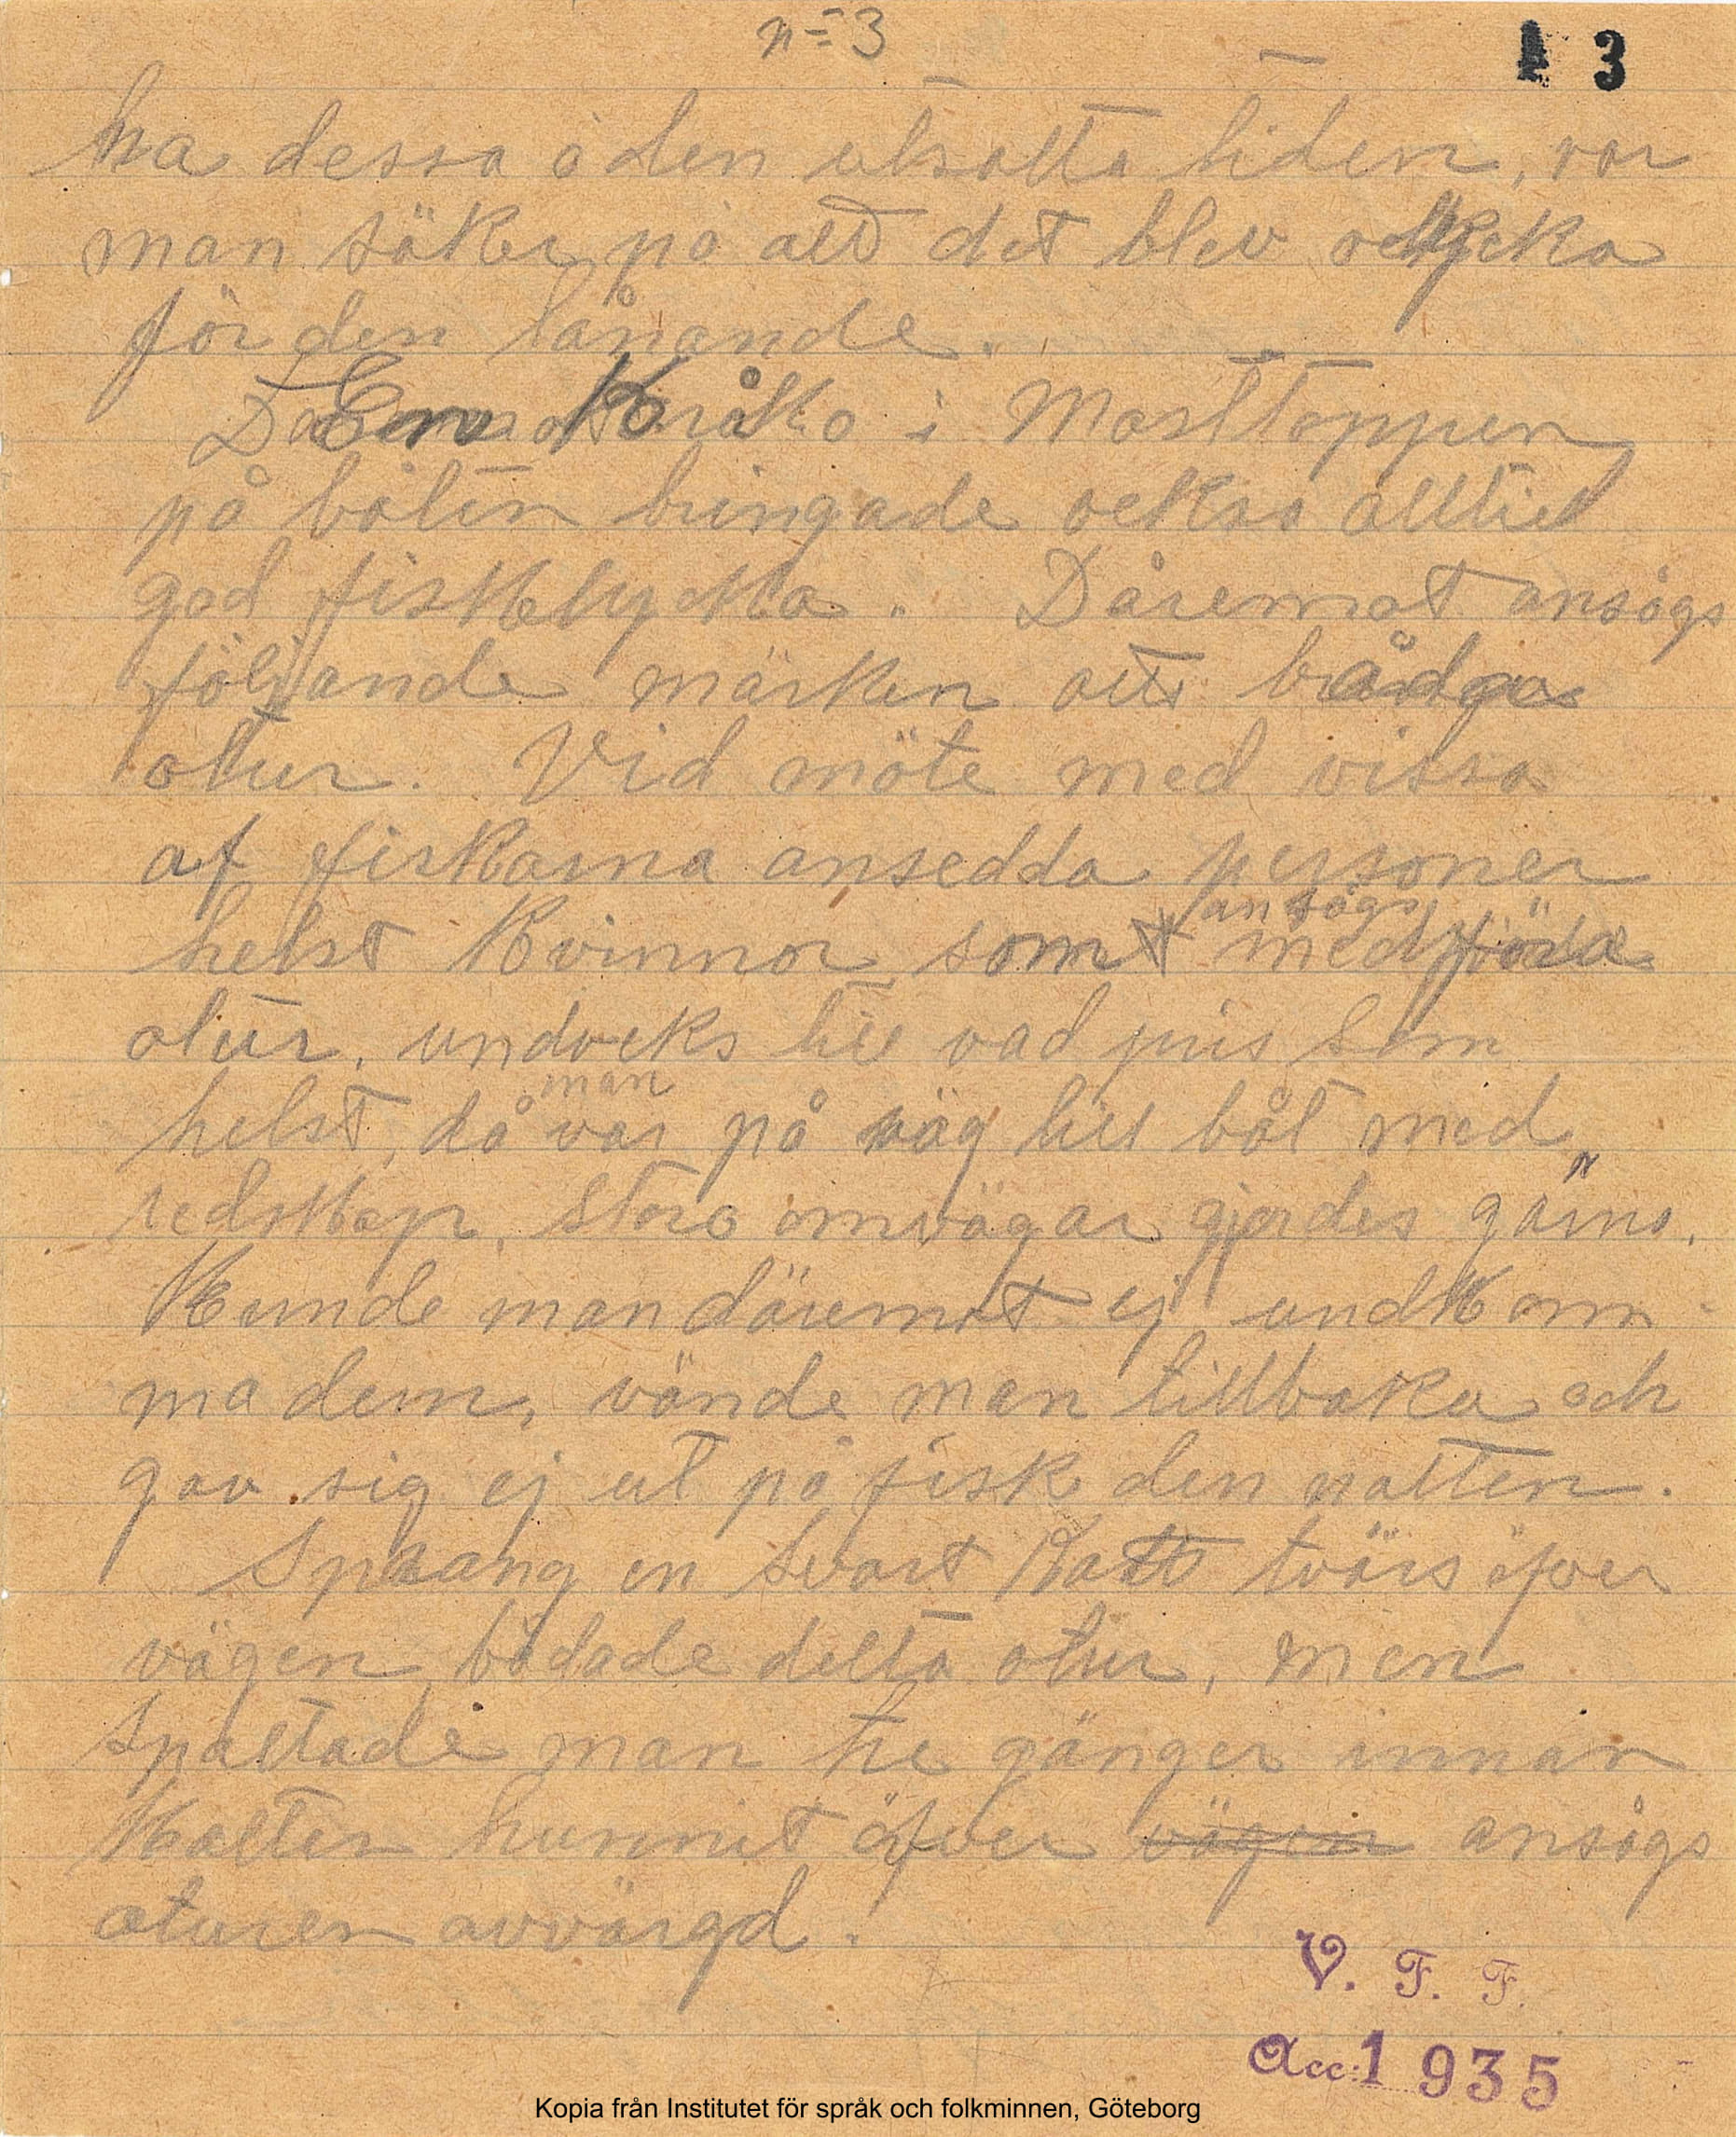 n=3
3
ha dessa å den utsatta tiden, var
man säker på att det blev olycka
för den lånande.
En Kråka i Masttoppen
på båten bringade också alltid
god fiskelycka. Däremot ansågs
följande märken att båda
otur. Vid möte med vissa
af fiskarna ansedda personer
helst Kvinnor, som ansågs medföra
otur, undveks till vad pris som
helst, då man var på väg till båt med
redskap. Stora omvägar gjordes gärna.
Kunde man däremot ej undkom-
ma dem, vände man tillbaka och
gav sig ej ut på fisk den natten.
Sprang en svart Katt tvärs öfver
vägen, bådade detta otur, men
spottade man tre gånger innan
Katten hunnit öfver vägen ansågs
oturen avvärgd.
V. F. F.
Acc: 1935
Kopia från Institutet för språk och folkminnen, Göteborg